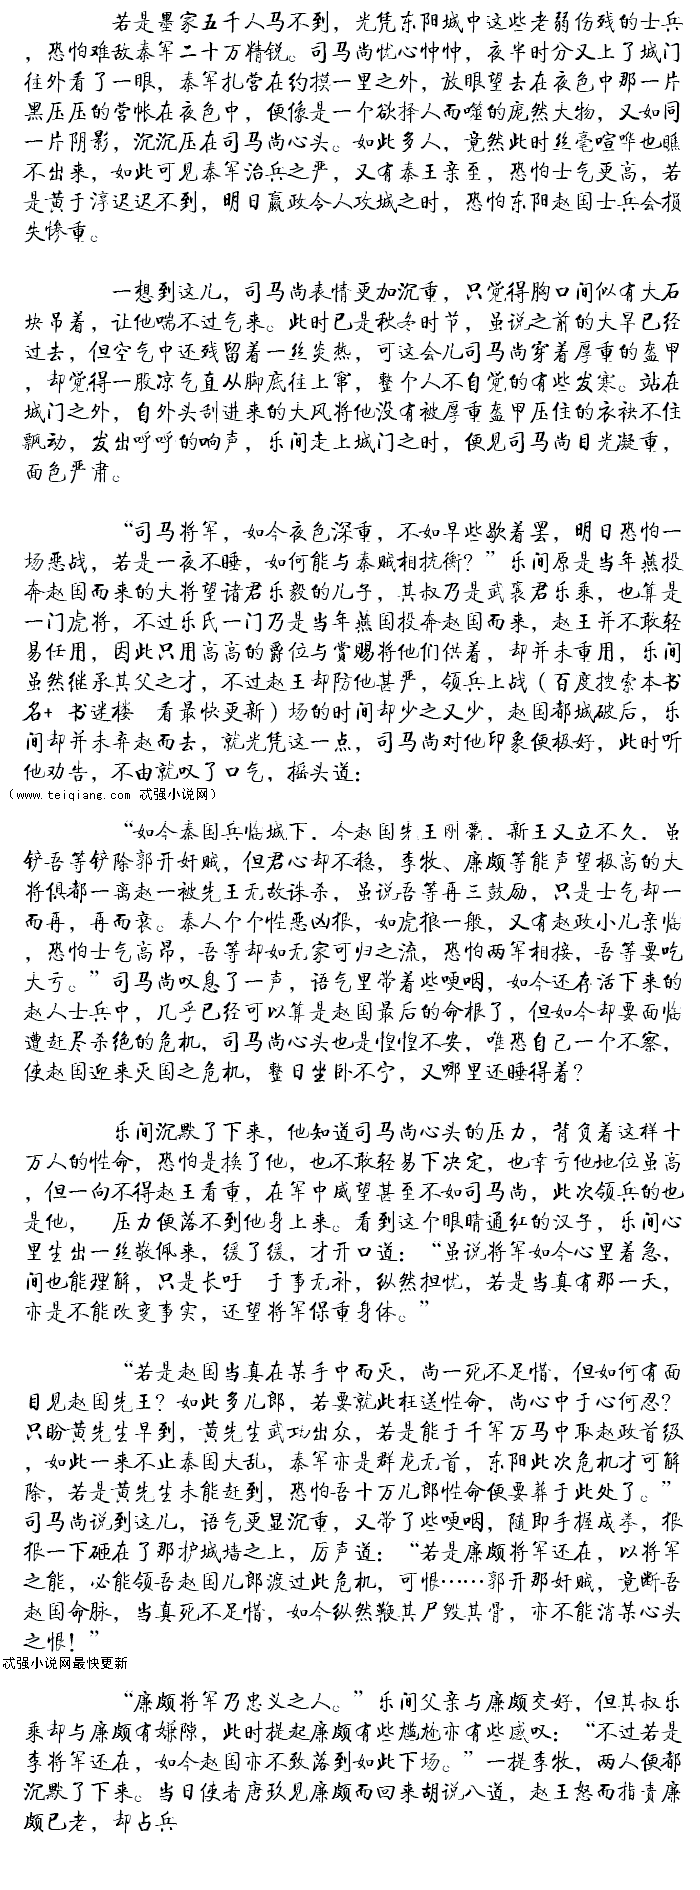 若是墨家五千人马不到，光凭东阳城中这些老弱伤残的士兵
，恐怕难敌秦军二十万精锐。司马尚忧心忡忡，夜半时分又上了城门
往外看了一眼，秦军扎营在约摸一里之外，放眼望去在夜色中那一片
黑压压的营帐在夜色中，便像是一个欲择人而噬的庞然大物，又如同
一片阴影，沉沉压在司马尚心头。如此多人，竟然此时丝毫喧哗也瞧
不出来，如此可见秦军治兵之严，又有秦王亲至，恐怕士气更高，若
是黄于淳迟迟不到，明日嬴政令人攻城之时，恐怕东阳赵国士兵会损
失惨重。
一想到这儿，司马尚表情更加沉重，只觉得胸口间似有大石
块吊着，让他喘不过气来。此时已是秋冬时节，虽说之前的大旱已经
过去，但空气中还残留着一丝炎热，可这会儿司马尚穿着厚重的盔甲
，却觉得一股凉气直从脚底往上窜，整个人不自觉的有些发寒。站在
城门之外，自外头刮进来的大风将他没有被厚重盔甲压住的衣袂不住
飘动，发出呼呼的响声，乐间走上城门之时，便见司马尚目光凝重，
面色严肃。
“司马将军，如今夜色深重，不如早些歇着罢，明日恐怕一
场恶战，若是一夜不睡，如何能与秦贼相抗衡？”乐间原是当年燕投
奔赵国而来的大将望诸君乐毅的儿子，其叔乃是武襄君乐乘，也算是
一门虎将，不过乐氏一门乃是当年燕国投奔赵国而来，赵王并不敢轻
易任用，因此只用高高的爵位与赏赐将他们供着，却并未重用，乐间
虽然继承其父之才，不过赵王却防他甚严，领兵上战（百度搜索本书
名+ 书迷楼 看最快更新）场的时间却少之又少，赵国都城破后，乐
间却并未弃赵而去，就光凭这一点，司马尚对他印象便极好，此时听
他劝告，不由就叹了口气，摇头道：
（www.teiqiang.com 忒强小说网）
“如今秦国兵临城下，今赵国先王刚薨，新王又立不久，虽
铲吾等铲除郭开奸贼，但君心却不稳，李牧、廉颇等能声望极高的大
将俱都一离赵一被先王无故诛杀，虽说吾等再三鼓励，只是士气却一
而再，再而衰。秦人个个性恶凶狠，如虎狼一般，又有赵政小儿亲临
，恐怕士气高昂，吾等却如无家可归之流，恐怕两军相接，吾等要吃
大亏。”司马尚叹息了一声，语气里带着些哽咽，如今还存活下来的
赵人士兵中，几乎已经可以算是赵国最后的命根了，但如今却要面临
遭赶尽杀绝的危机，司马尚心头也是惶惶不安，唯恐自己一个不察，
使赵国迎来灭国之危机，整日坐卧不宁，又哪里还睡得着？
乐间沉默了下来，他知道司马尚心头的压力，背负着这样十
万人的性命，恐怕是换了他，也不敢轻易下决定，也幸亏他地位虽高
，但一向不得赵王看重，在军中威望甚至不如司马尚，此次领兵的也
是他， 压力便落不到他身上来。看到这个眼睛通红的汉子，乐间心
里生出一丝敬佩来，缓了缓，才开口道：“虽说将军如今心里着急，
间也能理解，只是长吁 于事无补，纵然担忧，若是当真有那一天，
亦是不能改变事实，还望将军保重身体。”
“若是赵国当真在某手中而灭，尚一死不足惜，但如何有面
目见赵国先王？如此多儿郎，若要就此枉送性命，尚心中于心何忍？
只盼黄先生早到，黄先生武功出众，若是能于千军万马中取赵政首级
，如此一来不止秦国大乱，秦军亦是群龙无首，东阳此次危机才可解
除，若是黄先生未能赶到，恐怕吾十万儿郎性命便要葬于此处了。”
司马尚说到这儿，语气更显沉重，又带了些哽咽，随即手握成拳，狠
狠一下砸在了那护城墙之上，厉声道：“若是廉颇将军还在，以将军
之能，必能领吾赵国儿郎渡过此危机，可恨……郭开那奸贼，竟断吾
赵国命脉，当真死不足惜，如今纵然鞭其尸毁其骨，亦不能消某心头
之恨！”
忒强小说网最快更新
“廉颇将军乃忠义之人。”乐间父亲与廉颇交好，但其叔乐
乘却与廉颇有嫌隙，此时提起廉颇有些尴尬亦有些感叹：“不过若是
李将军还在，如今赵国亦不致落到如此下场。”一提李牧，两人便都
沉默了下来。当日使者唐玖见廉颇而回来胡说八道，赵王怒而指责廉
颇已老，却占兵